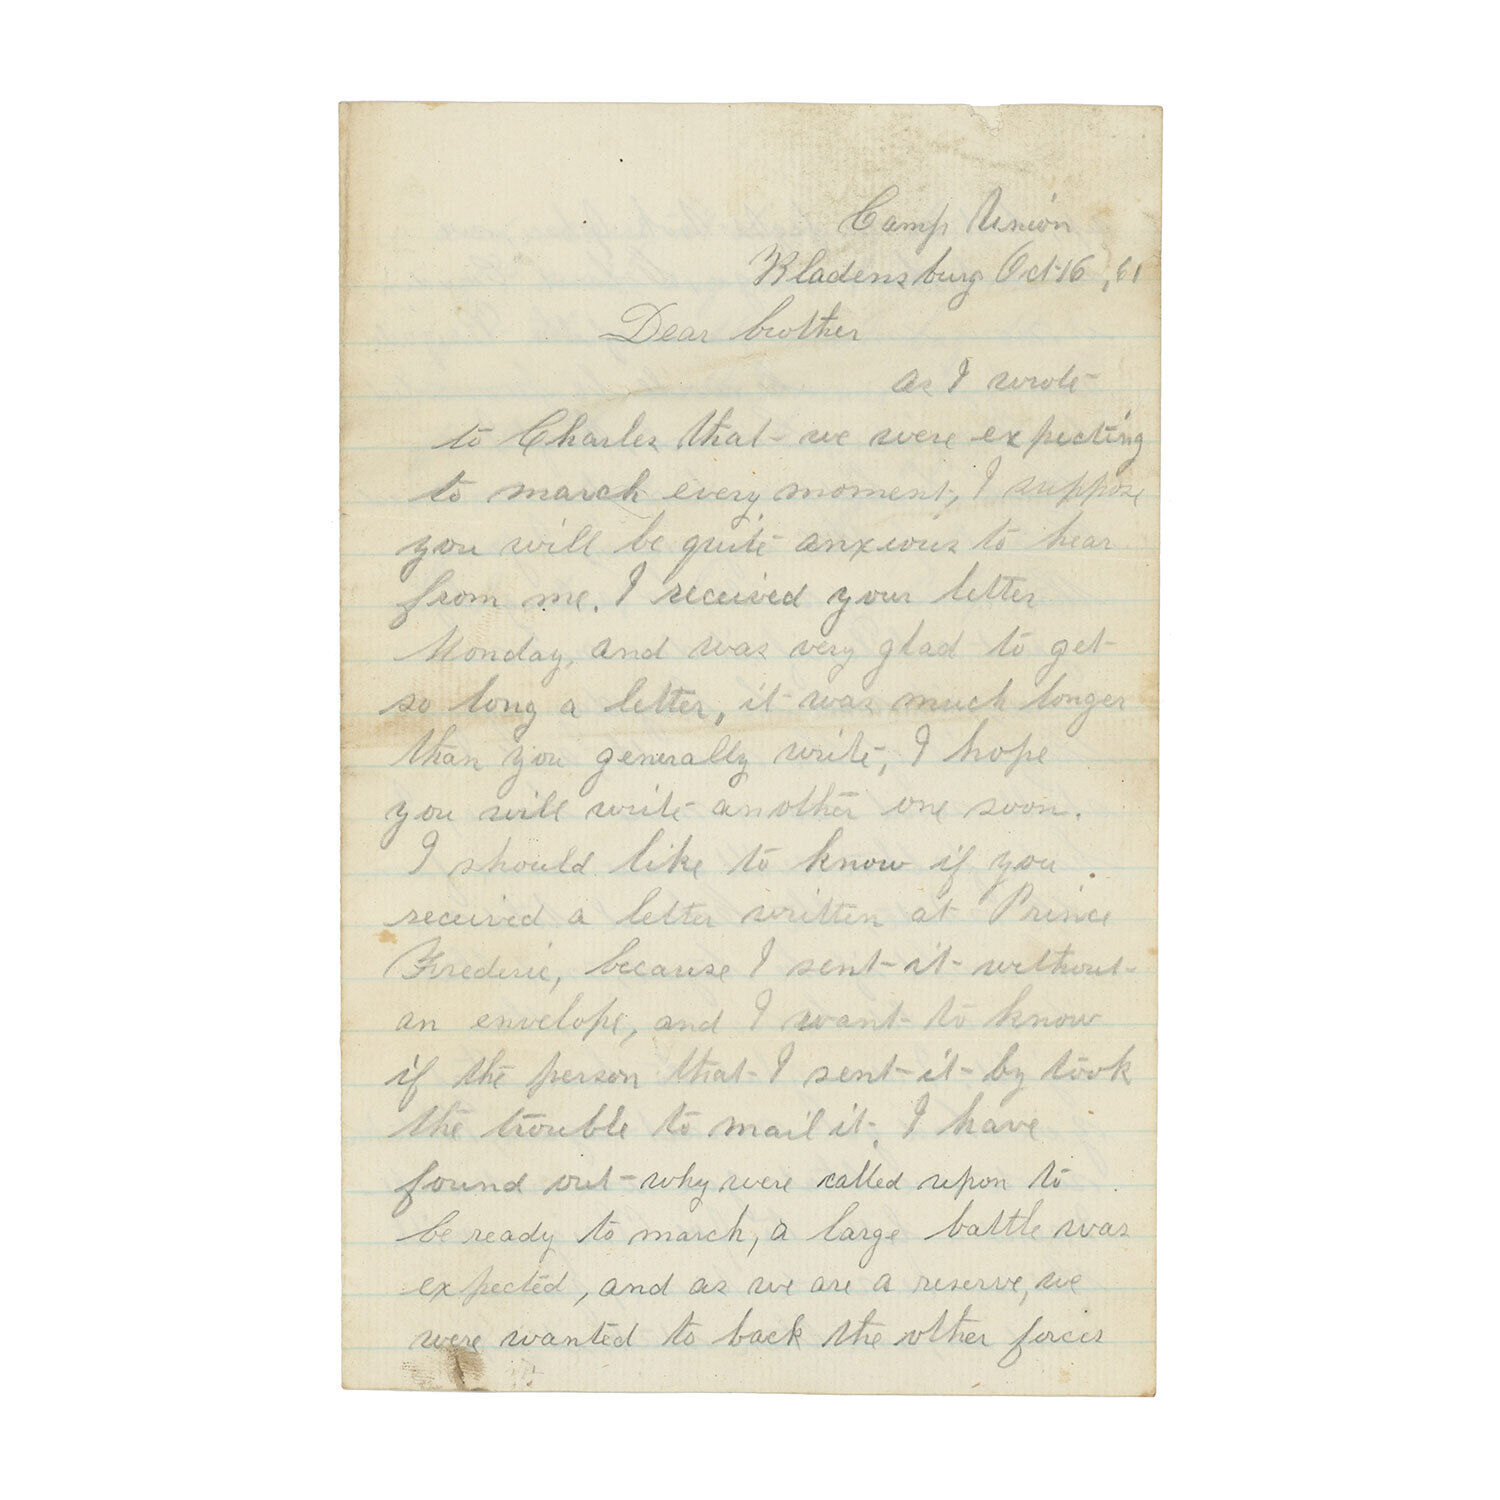 Camp Union
Bladensburg Oct 16, 61
Dear brother
as I wrote
to Charles that we were expecting
to march every moment, I suppose
you will be quite anxious to hear
from me. I received your letter
Monday, and was very glad to get
so long a letter, it was much longer
than you generally write, I hope
you will write another one soon.
I should like to know if you
received a letter written at Prince
Frederic, because I sent it without
an envelope, and I want to know
if the person that I sent it by took
the trouble to mail it. I have
found out why were called upon to
be ready to march, a large battle was
expected, and as we are a reserve, we
were wanted to back the other forces